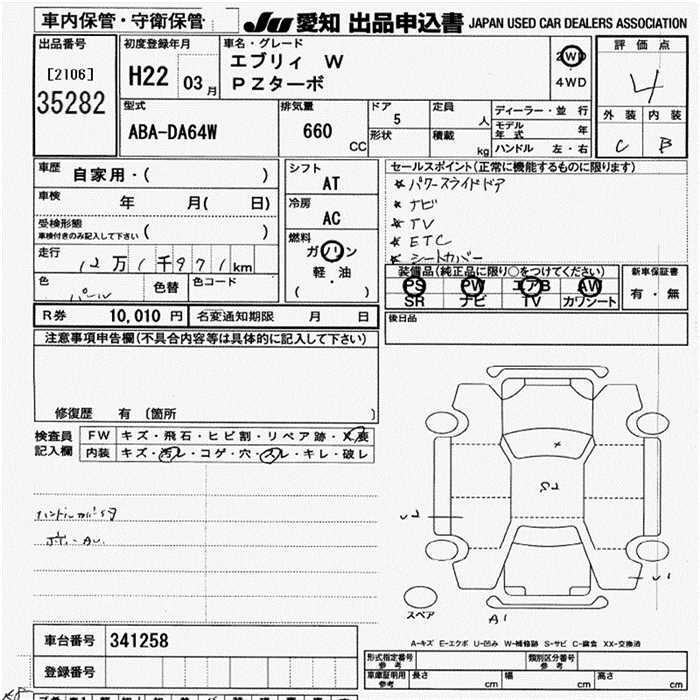 車内保管・守衛保管
JU 愛知 出品申込書 JAPAN USED CAR DEALERS ASSOCIATION
出品番号
[2106]
35282
初度登録年月
H22 03月
車名・グレード
エブリィ W
PZターボ
2WD
4WD
評価点
4
外装 内装
C B
型式
ABA-DA64W
排気量
660
CC
ドア
5
形状
定員
人
積載
kg
ディーラー・並行
モデル年式 年
ハンドル 左・右
車歴
自家用・( )
車検
年 月( 日)
受検形態
車検付きのみ記入して下さい ( )
走行
12万1千971km
色
パール
色替
色コード
シフト
AT
冷房
AC
燃料
ガソリン
軽・油
( )
セールスポイント(正常に機能するものに限ります)
★パワースライドドア
★ナビ
★TV
★ETC
★シートカバー
装備品(純正品に限り○をつけてください)
PS PW エアB AW
SR ナビ TV カワシート
新車保証書
有・無
R券 10,010円
名変通知期限 月 日
後日品
注意事項申告欄(不具合内容等は具体的に記入して下さい)
修復歴 有 〔箇所 〕
検査員
記入欄
FW キズ・飛石・ヒビ割・リペア跡・X要
内装 キズ・汚レ・コゲ・穴・スレ・キレ・破レ
U1
A1
スペア
A-キズ E-エクボ U-凹み W-補修跡 S-サビ C-腐食 XX-交換済
車台番号 341258
登録番号
形式指定番号
参考
類別区分番号
参考
車庫証明用
参考
長さ cm
幅 cm
高さ cm